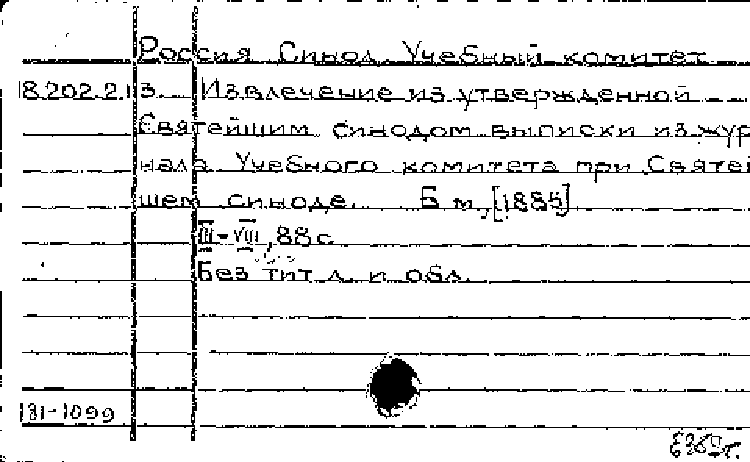 Россия Синод Учебный комитет
18.202.2.13 Извлечение из утвержденной
Святейшим синодом выписки из жур
нала Учебного комитета при Святей
шем синоде. Б м., [1885]
III-VIII, 88 с
Без тит л. и обл.
181-1099